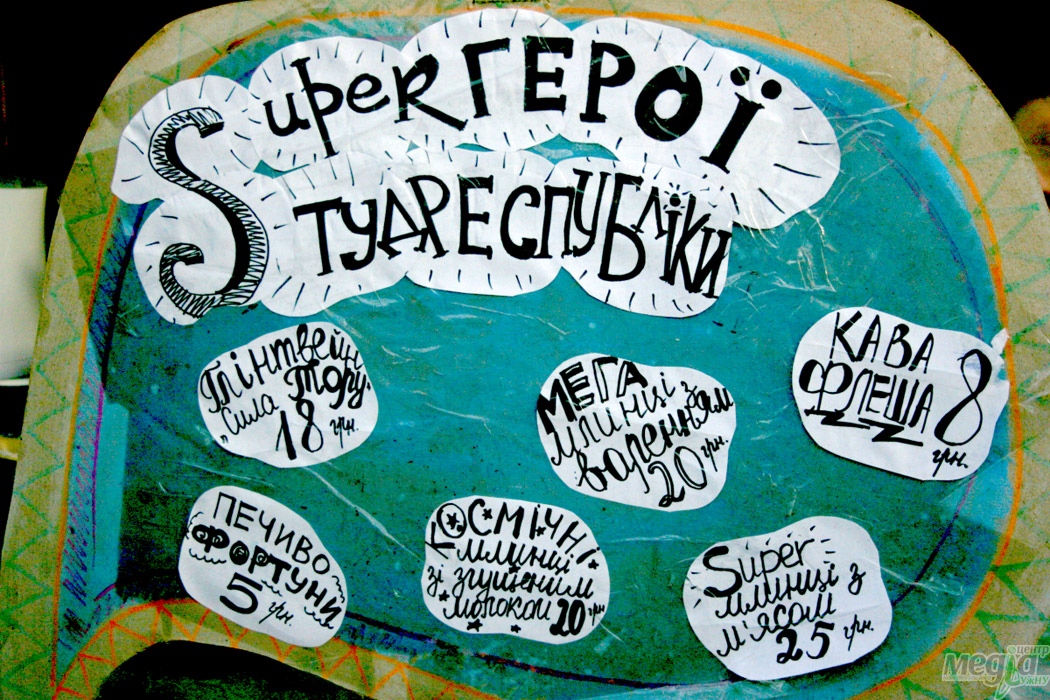 Super ГЕРОЇ
ТУДРЕСПУБЛІКИ
Глінтвейн
„сила Тору"
18 грн.
МЕГА
млинці з
варенням
20 грн.
КАВА
ФЛЕША 8
грн.
ПЕЧИВО
ФОРТУНИ
5 грн.
КОСМІЧНІ
млинці
зі згущеним
молоком 20 грн
Super
млинці з
м'ясом
25 грн.
центр
медіа
УЖНУ